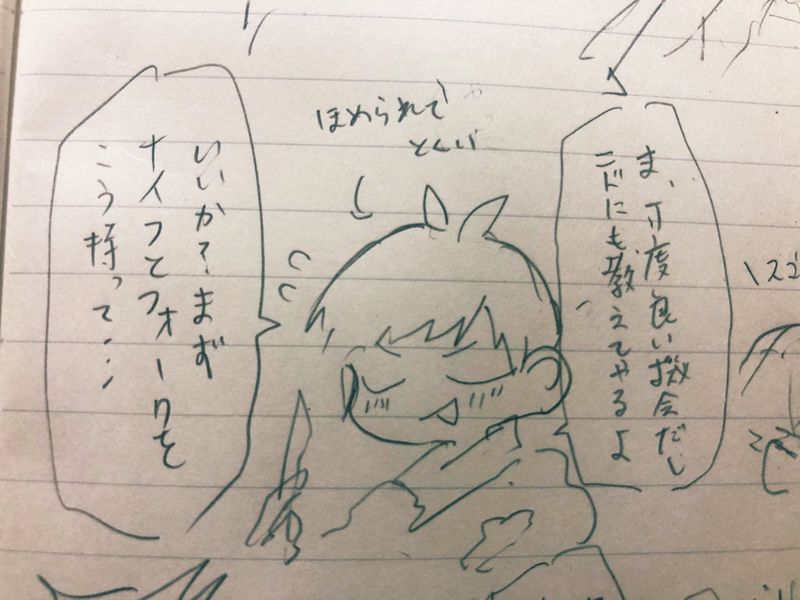 ま、丁度良い機会だし
ニドにも教えてやるよ
ほめられて
とくい
いいか?まず
ナイフとフォークを
こう持って…
スゴ